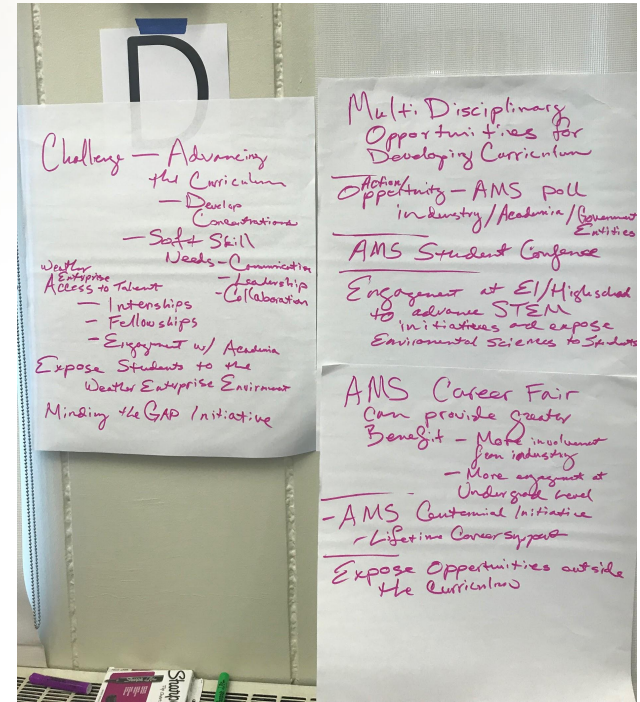 D
Challenge — Advancing
the Curriculum
— Develop
Concentrations
— Soft Skill
Needs - Communication
- Leadership
- Collaboration
Weather
Enterprise
Access to Talent
— Internships
- Fellowships
- Engagment w/ Academia
Expose Students to the
Weather Enterprise Enviroment
Minding the GAP Initiative
Multi Disciplinary
Opportunities for
Developing Curriculum
Action/
Opportunity — AMS poll
industry/Academia/Government
Entities
AMS Student Conference
Engagement at El/High school
to advance STEM
initiatives and expose
Enviromental Sciences to Students
AMS Career Fair
can provide greater
Benefit - More involvement
from industry
- More engagment at
Undergrad Level
- AMS Centennial Initiative
- Lifetime Career support
Expose Opportunities outside
the Curriculum
Sharpie